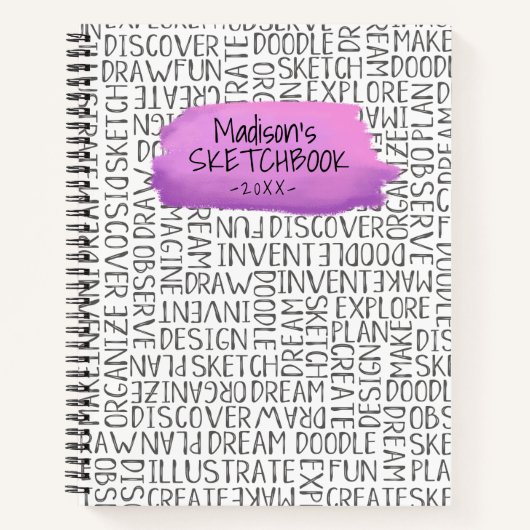 DISCOVER DOODLE DREAM MAKE
DRAW FUN SKETCH DOODLE
CREATE ILLUSTRATE ORGANIZE EXPLORE DREAM PLAN
Madison's
SKETCHBOOK
-20XX-
SKETCH DRAW IMAGINE OBSERVE
FUN DISCOVER
DREAM INVENT DOODLE
DISCOVER OBSERVE DRAW INVENT MAKE
INVENT DOODLE DREAM SKETCH EXPLORE
ORGANIZE DESIGN PLAN DOODLE
PLAN SKETCH CREATE DESIGN MAKE DISC
ORGANIZE DREAM DOODLE
DISCOVER DRAW DREAM OBS
DRAW PLAN DREAM DOODLE SKE
OBS DISC ILLUSTRATE EXP FUN DREAM PLAN
CREATE MAKE CREATE SKE